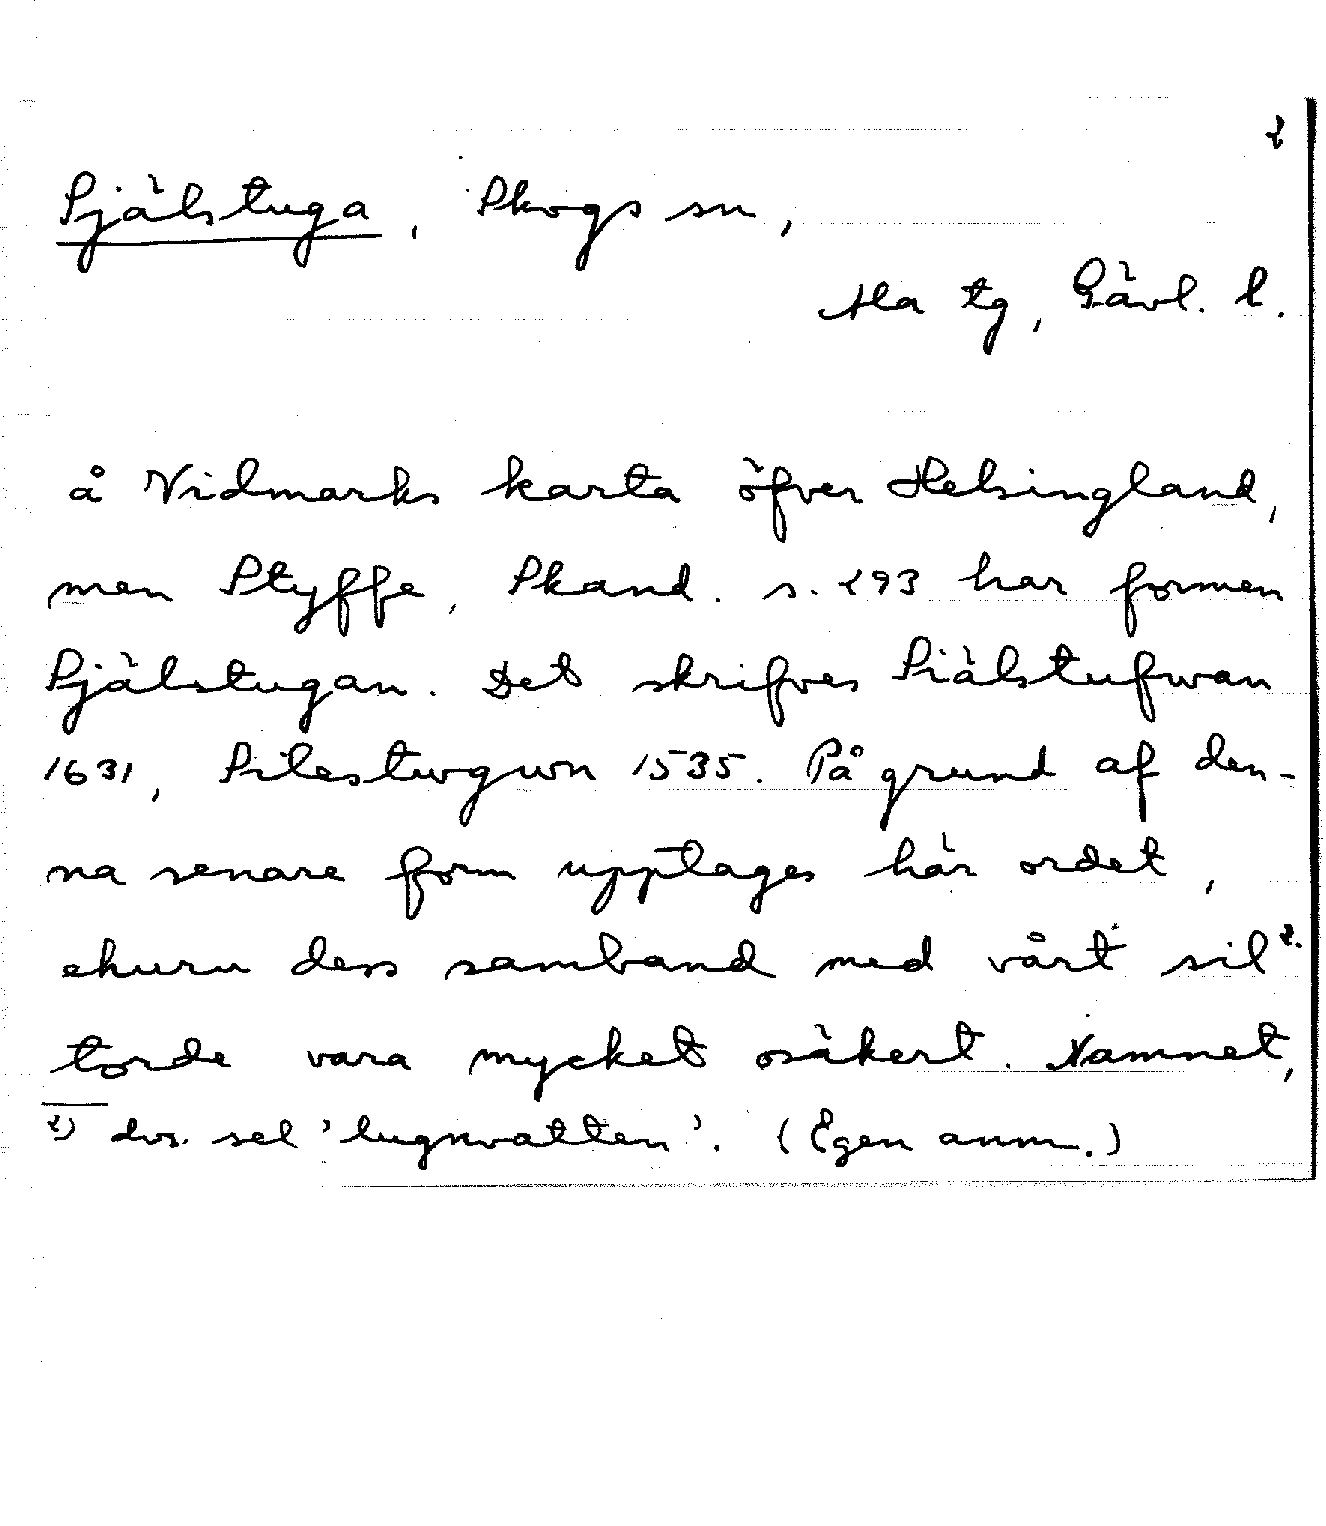 2
Själstuga, Skogs sn,
Ala tg, Gävl. l.
å Vidmarks karta öfver Helsingland,
men Styffe, Skand. s. 293 har formen
Själstugan. Det skrifves Siälstufwan
1631, Silestwgwn 1535. På grund af den-
na senare form upptages här ordet,
ehuru dess samband med vårt sil2.
torde vara mycket osäkert. Namnet,
2) dvs. sel 'lugnvatten'. (Egen anm.)